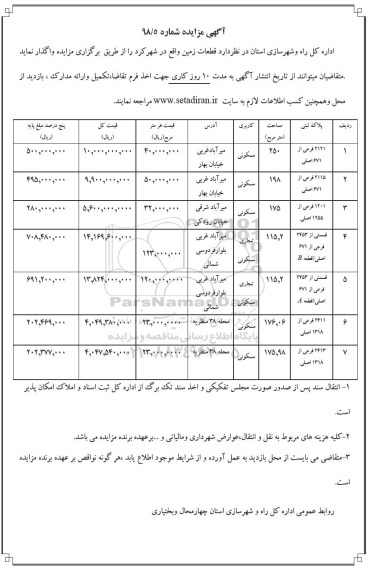 آگهی مزایده شماره ۹۸/۵
اداره کل راه وشهرسازی استان در نظردارد قطعات زمین واقع در شهرکرد را از طریق برگزاری مزایده واگذار نماید
.متقاضیان میتوانند از تاریخ انتشار آگهی به مدت ۱۰ روز کاری جهت اخذ فرم تقاضا،تکمیل وارائه مدارک ، بازدید از
محل وهمچنین کسب اطلاعات لازم به سایت www.setadiran.ir مراجعه نمایند.
ردیف پلاک ثبتی مساحت (متر مربع) کاربری آدرس قیمت هر متر مربع(ریال) قیمت کل (ریال) پنج درصد مبلغ پایه (ریال)
۱ ۲۱۲۱ فرعی از ۶۷۱ اصلی ۲۵۰ مسکونی میرآبادغربی خیابان بهار ۴۰,۰۰۰,۰۰۰ ۱۰,۰۰۰,۰۰۰,۰۰۰ ۵۰۰,۰۰۰,۰۰۰
۲ ۲۱۱۵ فرعی از ۶۷۱ اصلی ۱۹۸ مسکونی میرآباد غربی خیابان بهار ۵۰,۰۰۰,۰۰۰ ۹,۹۰۰,۰۰۰,۰۰۰ ۴۹۵,۰۰۰,۰۰۰
۳ ۱۲۰۱ فرعی از ۱۲۵۵ اصلی ۱۷۵ مسکونی میرآباد شرقی خیابان رودکی ۳۲,۰۰۰,۰۰۰ ۵,۶۰۰,۰۰۰,۰۰۰ ۲۸۰,۰۰۰,۰۰۰
۴ قسمتی از ۲۴۵۳ فرعی از ۶۷۱ اصلی(قطعه B ۱۱۵,۲ تجاری مسکونی میرآباد غربی بلوارفردوسی شمالی ۱۲۳,۰۰۰,۰۰۰ ۱۴,۱۶۹,۶۰۰,۰۰۰ ۷۰۸,۴۸۰,۰۰۰
۵ قسمتی از ۲۴۵۳ فرعی از ۶۷۱ اصلی(قطعه ۱۱۵,۲ تجاری مسکونی میرآباد غربی بلوارفردوسی شمالی ۱۲۰,۰۰۰,۰۰۰ ۱۳,۸۲۴,۰۰۰,۰۰۰ ۶۹۱,۲۰۰,۰۰۰
۶ ۲۴۱۱ فرعی از ۱۳۱۸ اصلی ۱۷۶,۰۶ مسکونی محله ۳۸ منظریه ۲۳,۰۰۰,۰۰۰ ۴,۰۴۹,۳۸۰,۰۰۰ ۲۰۲,۴۶۹,۰۰۰
۷ ۲۴۱۳ فرعی از ۱۳۱۸ اصلی ۱۷۵,۹۸ مسکونی محله ۳۸ منظریه ۲۳,۰۰۰,۰۰۰ ۴,۰۴۷,۵۴۰,۰۰۰ ۲۰۲,۳۷۷,۰۰۰
۱- انتقال سند پس از صدور صورت مجلس تفکیکی و اخذ سند تک برگ از اداره کل ثبت اسناد و املاک امکان پذیر
است.
۲-کلیه هزینه های مربوط به نقل و انتقال،عوارض شهرداری ومالیاتی و ...برعهده برنده مزایده می باشد.
۳-متقاضی می بایست از محل بازدید به عمل آورده و از شرایط موجود اطلاع یابد ،هر گونه نواقص بر عهده برنده مزایده
است.
روابط عمومی اداره کل راه و شهرسازی استان چهارمحال وبختیاری